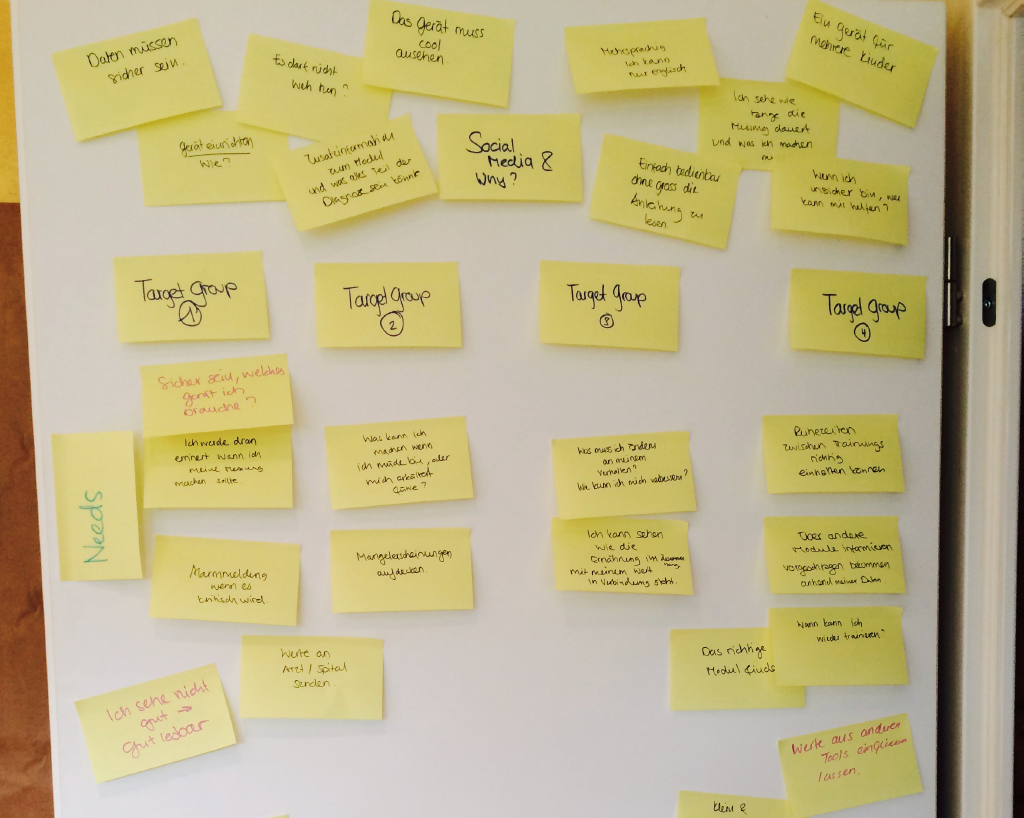 Daten müssen
sicher sein.
Es darf nicht
weh tun?
Das gerät muss
cool
aussehen.
Mehrsprachig
Ich kann
nur englisch
Ein gerät für
mehrere kinder
gerät einrichten
Wie?
Zusatzinformation
zum Modul
und was alles Teil der
Diagnose sein könnte
Social
Media &
Why?
Einfach bedienbar
ohne gross die
Anleitung zu
lesen.
Ich sehe wie
lange die
Messung dauert
und was ich machen
Wenn ich
unsicher bin, wer
kann mir helfen?
Target Group
1
Target Group
2
Target Group
3
Target Group
4
Needs
Sicher sein, welches
gerät ich
brauche?
Ich werde dran
erinnert wann ich
meine Messung
machen sollte.
Alarmmeldung
wenn es
kritisch wird.
Werte an
Arzt / Spital
senden.
Ich sehe nicht
gut →
Gut lesbar
Was kann ich
machen wenn
ich müde bin, oder
mich erkältet
fühle?
Mangelerscheinungen
aufdecken.
Was muss ich ändern
an meinem
Verhalten?
Wie kann ich mich verbessern?
Ich kann sehen
wie die
Ernährung im
mit meinem Wert
in Verbindung steht.
Ruhezeiten
zwischen Trainings
richtig
einhalten können
Über andere
Module informieren
vorgeschlagen bekommen
anhand meiner Daten
Das richtige
Modul
Wann kann ich
wieder trainieren?
Werte aus anderen
Tools einfliessen
lassen.
klein &